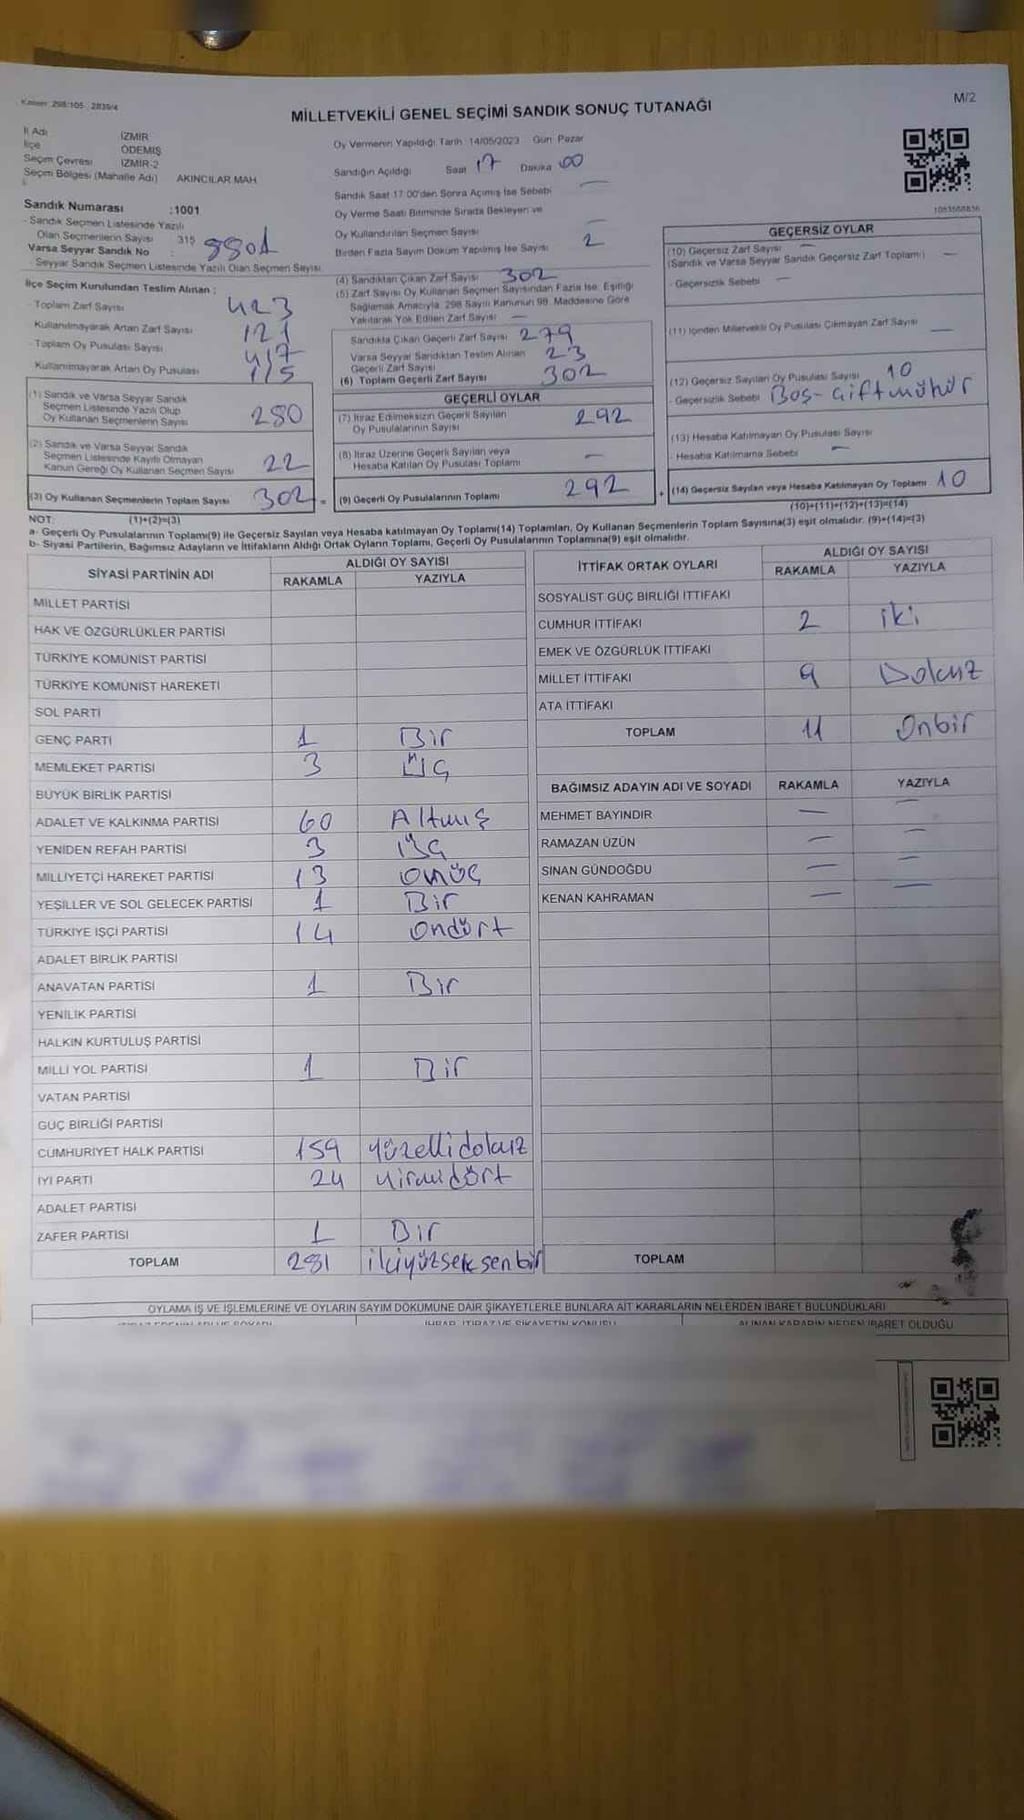 Kanun: 298/105 , 2839/4
M/2
MİLLETVEKİLİ GENEL SEÇİMİ SANDIK SONUÇ TUTANAĞI
İl Adı İZMİR
İlçe ÖDEMİŞ
Seçim Çevresi İZMİR-2
Seçim Bölgesi (Mahalle Adı) AKINCILAR MAH
Sandık Numarası :1001
- Sandık Seçmen Listesinde Yazılı
Olan Seçmenlerin Sayısı 315
Varsa Seyyar Sandık No : 8801
- Seyyar Sandık Seçmen Listesinde Yazılı Olan Seçmen Sayısı
İlçe Seçim Kurulundan Teslim Alınan :
- Toplam Zarf Sayısı 423
Kullanılmayarak Artan Zarf Sayısı 121
- Toplam Oy Pusulası Sayısı 417
Kullanılmayarak Artan Oy Pusulası 115
(1) Sandık ve Varsa Seyyar Sandık
Seçmen Listesinde Yazılı Olup
Oy Kullanan Seçmenlerin Sayısı 280
(2) Sandık ve Varsa Seyyar Sandık
Seçmen Listesinde Kayıtlı Olmayan
Kanun Gereği Oy Kullanan Seçmen Sayısı 22
(3) Oy Kullanan Seçmenlerin Toplam Sayısı 302 =
(1)+(2)=(3)
Oy Vermenin Yapıldığı Tarih : 14/05/2023 Gün: Pazar
Sandığın Açıldığı Saat 17 Dakika 00
Sandık Saat 17:00'den Sonra Açılmış İse Sebebi —
Oy Verme Saati Bitiminde Sırada Bekleyen ve
Oy Kullandırılan Seçmen Sayısı —
Birden Fazla Sayım Döküm Yapılmış İse Sayısı 2
(4) Sandıktan Çıkan Zarf Sayısı 302
(5) Zarf Sayısı Oy Kullanan Seçmen Sayısından Fazla İse, Eşitliği
Sağlamak Amacıyla, 298 Sayılı Kanunun 98. Maddesine Göre
Yakılarak Yok Edilen Zarf Sayısı —
Sandıkta Çıkan Geçerli Zarf Sayısı 279
Varsa Seyyar Sandıktan Teslim Alınan
Geçerli Zarf Sayısı 23
(6) Toplam Geçerli Zarf Sayısı 302
GEÇERLİ OYLAR
(7) İtiraz Edilmeksizin Geçerli Sayılan
Oy Pusulalarının Sayısı 292
(8) İtiraz Üzerine Geçerli Sayılan veya
Hesaba Katılan Oy Pusulası Toplamı —
(9) Geçerli Oy Pusulalarının Toplamı 292 +
GEÇERSİZ OYLAR
(10) Geçersiz Zarf Sayısı —
(Sandık ve Varsa Seyyar Sandık Geçersiz Zarf Toplamı) —
- Geçersizlik Sebebi —
(11) İçinden Milletvekili Oy Pusulası Çıkmayan Zarf Sayısı —
(12) Geçersiz Sayılan Oy Pusulası Sayısı 10
- Geçersizlik Sebebi Boş-çiftmühür
(13) Hesaba Katılmayan Oy Pusulası Sayısı
- Hesaba Katılmama Sebebi —
(14) Geçersiz Sayılan veya Hesaba Katılmayan Oy Toplamı 10
(10)+(11)+(12)+(13)=(14)
NOT:
a- Geçerli Oy Pusulalarının Toplamı(9) ile Geçersiz Sayılan veya Hesaba katılmayan Oy Toplamı(14) Toplamları, Oy Kullanan Seçmenlerin Toplam Sayısına(3) eşit olmalıdır. (9)+(14)=(3)
b- Siyasi Partilerin, Bağımsız Adayların ve İttifakların Aldığı Ortak Oyların Toplamı, Geçerli Oy Pusulalarının Toplamına(9) eşit olmalıdır.
SİYASİ PARTİNİN ADI ALDIĞI OY SAYISI
RAKAMLA YAZIYLA
MİLLET PARTİSİ
HAK VE ÖZGÜRLÜKLER PARTİSİ
TÜRKİYE KOMÜNİST PARTİSİ
TÜRKİYE KOMÜNİST HAREKETİ
SOL PARTİ
GENÇ PARTİ 1 Bir
MEMLEKET PARTİSİ 3 Üç
BÜYÜK BİRLİK PARTİSİ
ADALET VE KALKINMA PARTİSİ 60 Altmış
YENİDEN REFAH PARTİSİ 3 Üç
MİLLİYETÇİ HAREKET PARTİSİ 13 onüç
YEŞİLLER VE SOL GELECEK PARTİSİ 1 Bir
TÜRKİYE İŞÇİ PARTİSİ 14 ondört
ADALET BİRLİK PARTİSİ
ANAVATAN PARTİSİ 1 Bir
YENİLİK PARTİSİ
HALKIN KURTULUŞ PARTİSİ
MİLLİ YOL PARTİSİ 1 Bir
VATAN PARTİSİ
GÜÇ BİRLİĞİ PARTİSİ
CUMHURİYET HALK PARTİSİ 159 Yüzellidokuz
İYİ PARTİ 24 Yirmidört
ADALET PARTİSİ
ZAFER PARTİSİ 1 Bir
TOPLAM 281 ikiyüzseksenbir
İTTİFAK ORTAK OYLARI ALDIĞI OY SAYISI
RAKAMLA YAZIYLA
SOSYALİST GÜÇ BİRLİĞİ İTTİFAKI
CUMHUR İTTİFAKI 2 iki
EMEK VE ÖZGÜRLÜK İTTİFAKI
MİLLET İTTİFAKI 9 Dokuz
ATA İTTİFAKI
TOPLAM 11 Onbir
BAĞIMSIZ ADAYIN ADI VE SOYADI RAKAMLA YAZIYLA
MEHMET BAYINDIR — —
RAMAZAN ÜZÜN — —
SİNAN GÜNDOĞDU — —
KENAN KAHRAMAN — —
TOPLAM
OYLAMA İŞ VE İŞLEMLERİNE VE OYLARIN SAYIM DÖKÜMÜNE DAİR ŞİKAYETLERLE BUNLARA AİT KARARLARIN NELERDEN İBARET BULUNDUKLARI
İHBAR, İTİRAZ VE ŞİKAYETİN KONUSU ALINAN KARARIN NEDEN İBARET OLDUĞU